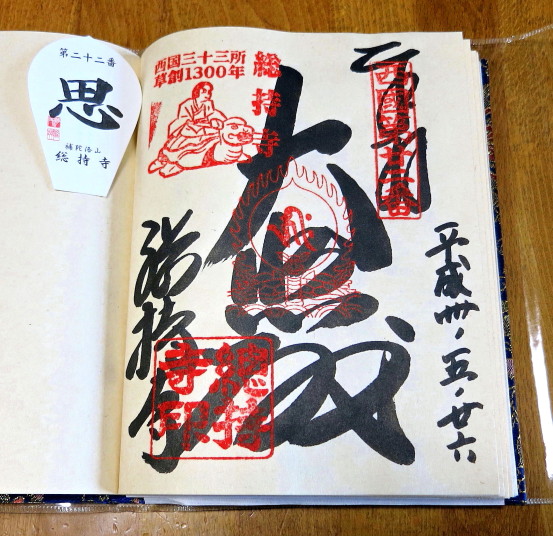 第二十二番
思
補陀洛山
総持寺
西国三十三所
草創1300年
総持寺
西國第廿二番
大悲殿
総持寺
總持
寺印
平成卅・五・廿六